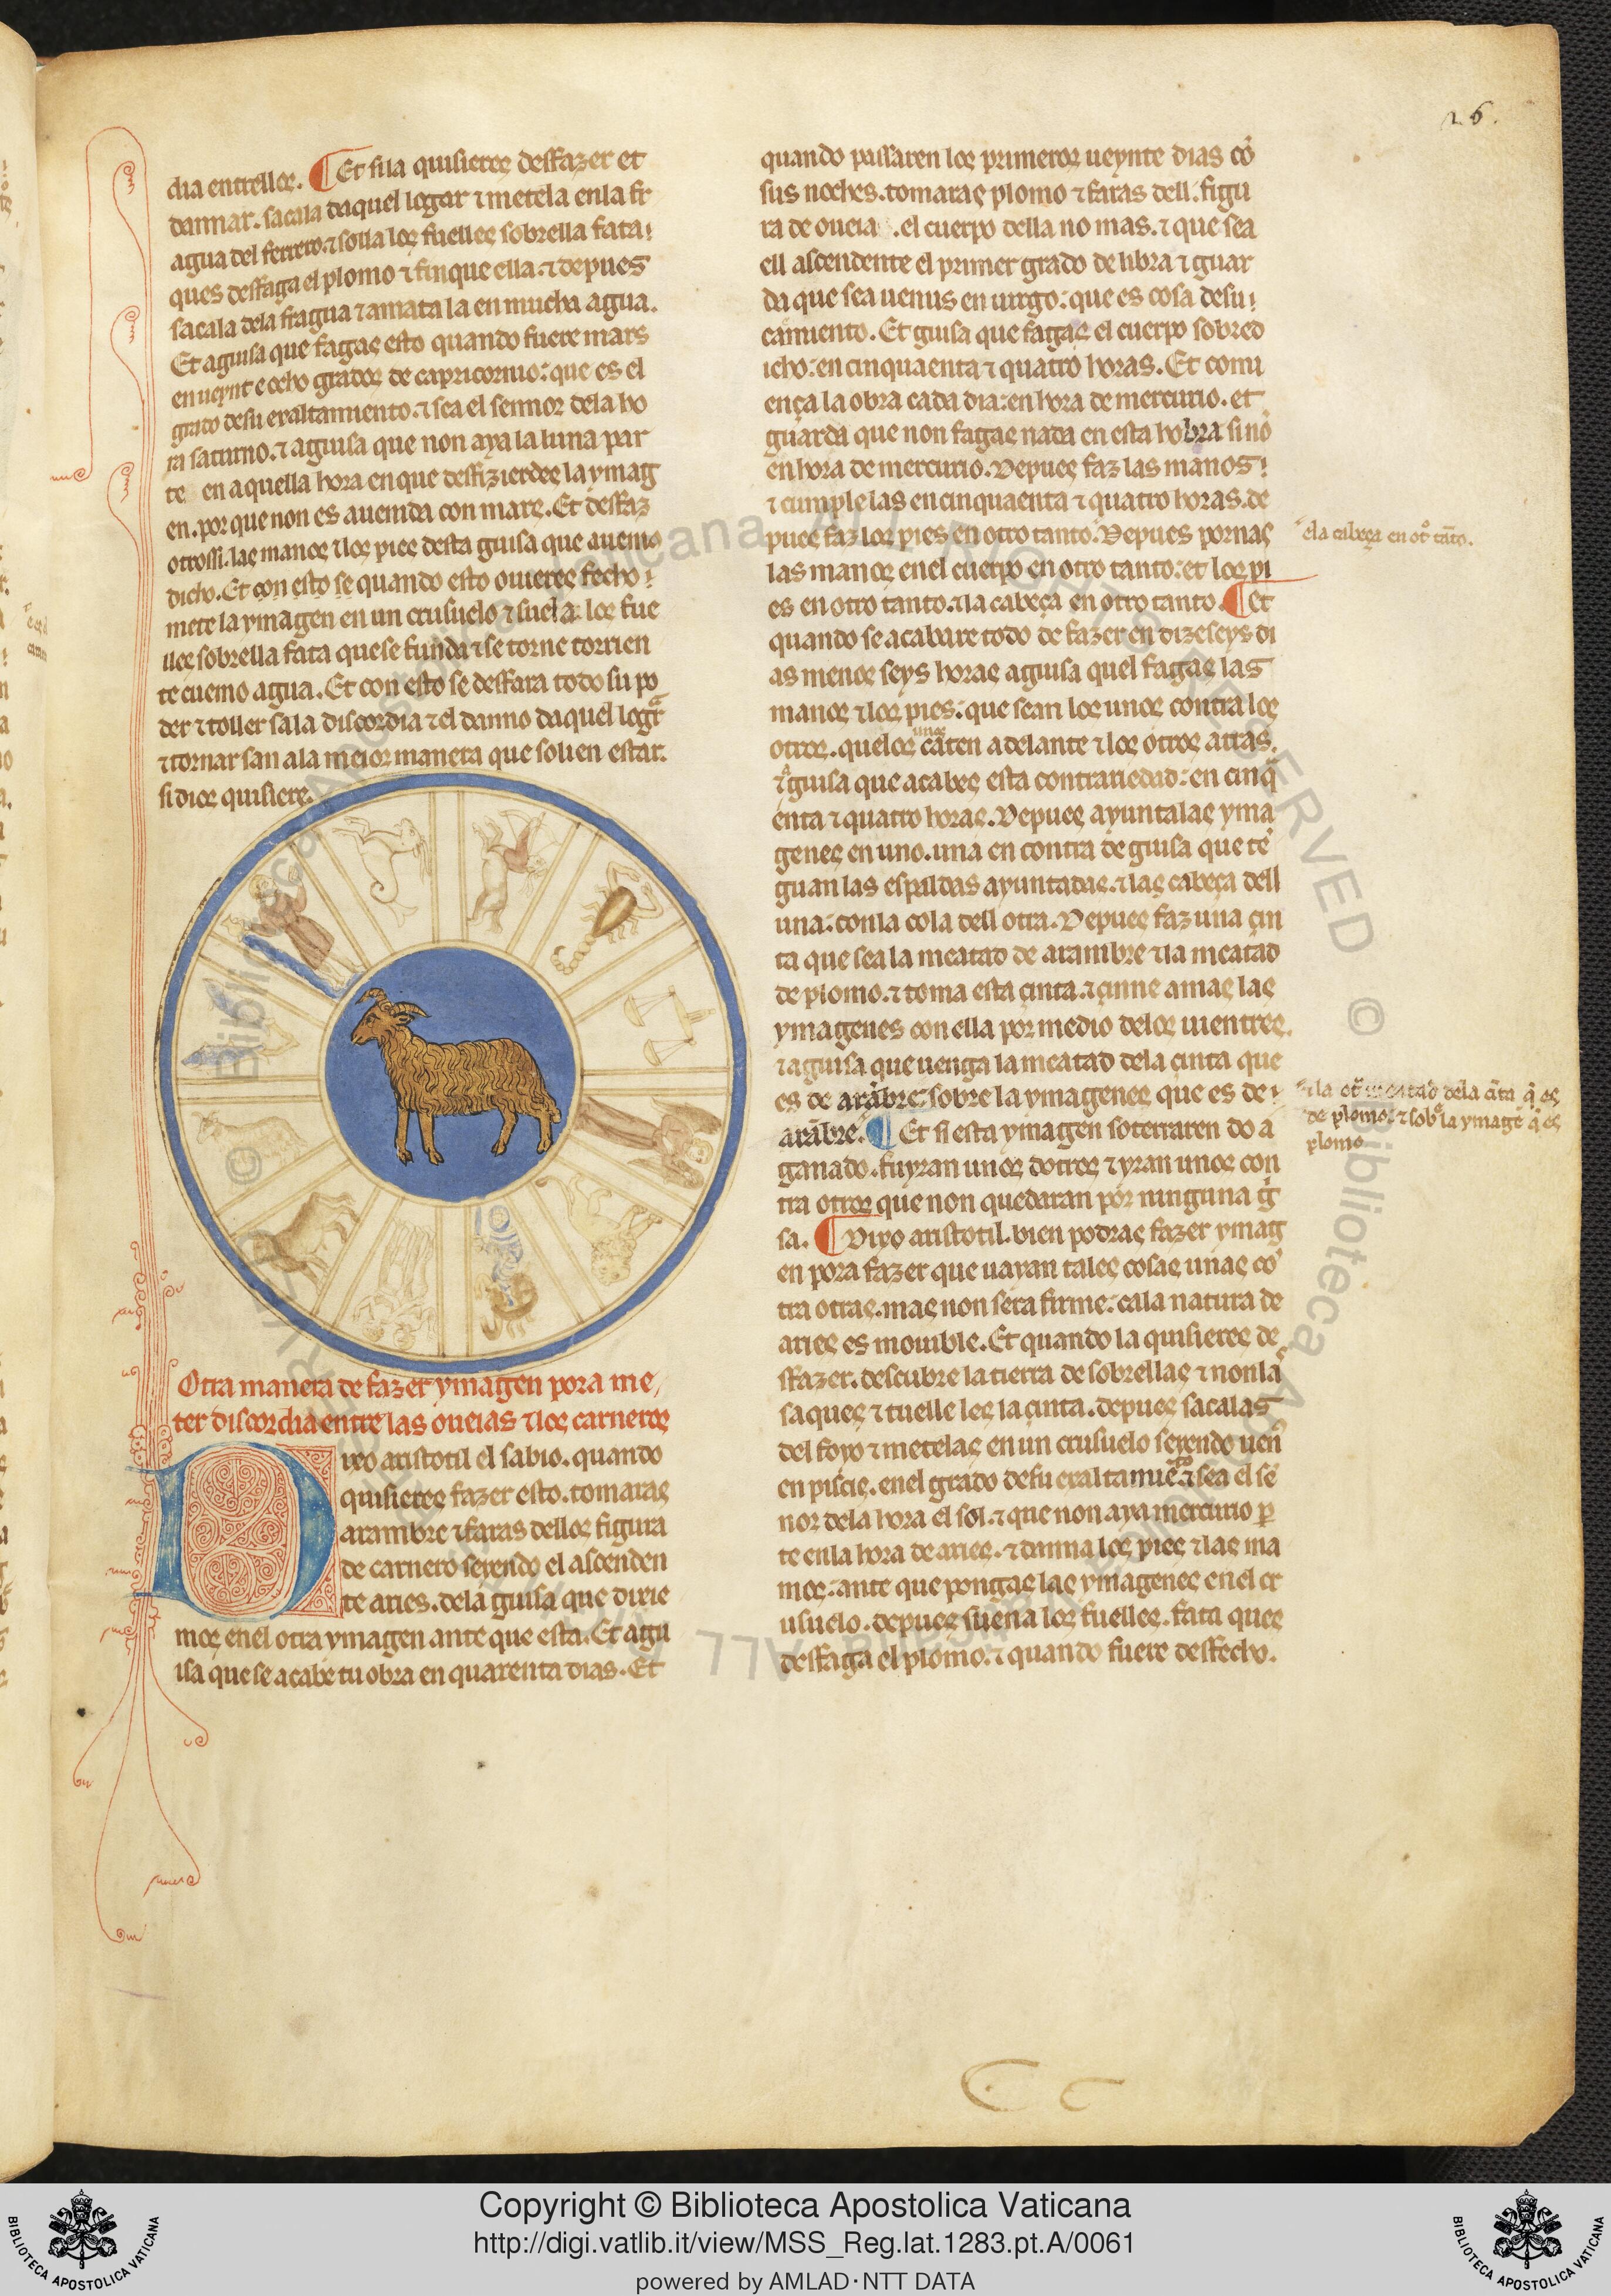 26.
dia entrellos. ¶ Et si la quisieres desfazer et
dannar. sacala daquel logar ⁊ metela en la fr
agua del ferrero. ⁊ solla los fuelles sobrella fata
ques desfaga el plomo ⁊ finque ella. ⁊ depues
sacala dela fragua ⁊ amata la en mucha agua.
Et aguisa que fagas esto quando fuere mars
en ueynt e ocho grados de capricornio: que es el
grado de su exaltamiento. ⁊ sea el sennor dela ho
ra saturno. ⁊ aguisa que non aya la luna par
te en aquella hora en que desfizierdes la ymag
en. por que non es auenida con mars. Et desfaz
otrossi. las manos ⁊ los pies desta guisa que auemos
dicho. Et con esto se quando esto ouieres fecho:
mete la ymagen en un crusuelo ⁊ suela los fue
lles sobrella fata que se funda ⁊ se torne corrien
te cuemo agua. Et con esto se desfara todo su po
der ⁊ toller sa la discordia ⁊ el danno daquel logar
⁊ tornar san ala meior manera que solien estar.
si dios quisiere.
Otra manera de fazer ymagen pora me
ter discordia entre las oueias ⁊ los carneros
Dixo aristotil el sabio. quando
quisieres fazer esto. tomaras
arambre ⁊ faras dellos figura
de carnero seyendo el ascenden
te aries. dela guisa que dixie
mos enel otra ymagen ante que esta. Et agu
isa que se acabe tu obra en quarenta dias. Et
quando passaren los primeros ueynte dias cõ
sus noches. tomaras plomo ⁊ faras dell. figu
ra de oueia .el cuerpo della no mas. ⁊ que sea
ell ascendente el primer grado de libra ⁊ guar
da que sea uenus en uirgo: que es cosa de su
caimiento. Et guisa que fagas el cuerpo sobred
icho: en cinquaenta ⁊ quatro horas. Et comi
ença la obra cada dia: en hora de mercurio. et
guarda que non fagas nada en esta hobra sinõ
en hora de mercurio. Depues faz las manos:
⁊ cumple las en cinquaenta ⁊ quatro horas. de
pues faz los pies en otro tanto. Depues pornas
las manos enel cuerpo en otro tanto: et los pi
es en otro tanto. ⁊ la cabeça en otro tanto. ¶ Et
quando se acabare todo de fazer en dizeseys di
as menos seys horas aguisa quel fagas las
manos ⁊ los pies: que sean los unos contra los
otros. que los unos cãten adelante ⁊ los otros atras.
⁊ guisa que acabes esta contrariedad: en cinq̃
enta ⁊ quatro horas. Depues ayunta las yma
genes en uno. una en contra de guisa que tẽ
guan las espaldas ayuntadas. ⁊ las cabeça dell
una: con la cola dell otra. Depues faz una çin
ta que sea la meatad de arambre ⁊ la meatad
de plomo. ⁊ toma esta çinta. ⁊ çinne amas las
ymagenes con ella por medio delos uientres.
⁊ aguisa que uenga la meatad dela çinta que
es de arãbre: sobre la ymagenes que es de
arãbre. ¶ Et si esta ymagen soterraren do a
ganado. fuyran unos dotros ⁊ yran unos con
tra otros que non quedaran por ninguna g̃
sa. ¶ Dixo aristotil. bien podras fazer ymag
en pora fazer que uayan tales cosas unas cõ
tra otras. mas non sera firme: ca la natura de
aries es mouible. Et quando la quisieres de
sfazer. descubre la tierra de sobrellas ⁊ non la
saques ⁊ tuelle les la çinta. depues sacalas
del foyo ⁊ metelas en un crusuelo seyendo uen
en piscis. enel grado de su exaltamiento ⁊ sea el sẽ
nor dela hora el sol. ⁊ que non aya mercurio p
te en la hora de aries. ⁊ danna los pies ⁊ las ma
nos: ante que pongas las ymagenes enel cr
usuelo. depues suena los fuelles. fata ques
desfaga el plomo. ⁊ quando fuere desfecho.
ela cabeça en ot̃ tãto.
⁊ la ot̃ meatad dela çĩta q̃ es
de plomo. ⁊ sob̃ la ymagẽ q̃ es
plomo
Copyright © Biblioteca Apostolica Vaticana
http://digi.vatlib.it/view/MSS_Reg.lat.1283.pt.A/0061
powered by AMLAD·NTT DATA
BIBLIOTECA APOSTOLICA VATICANA
BIBLIOTECA APOSTOLICA VATICANA